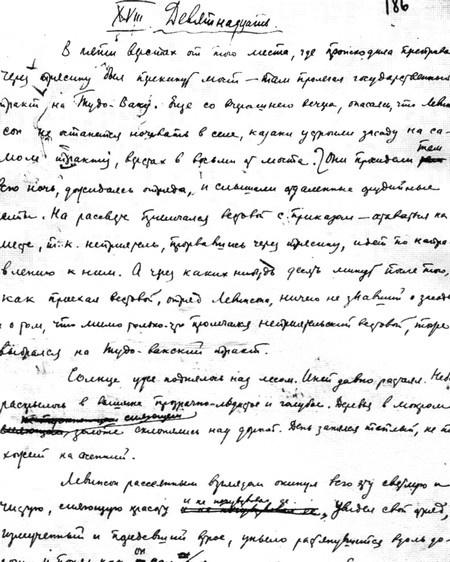 XVIII Девятнадцать
186
В пяти верстах от того места, где происходила переправа
через трясину был перекинут мост — там пролегал государственный
тракт на Тудо-Ваку. Еще со вчерашнего вечера, опасаясь, что Левин
сон не останется ночевать в селе, казаки устроили засаду на са-
мом тракту, верстах в восьми от моста. Они просидели там
всю ночь, дожидаясь отряда, и слышали отдаленные орудийные
залпы. На рассвете примчался вестовой с приказом — оставаться на
месте, т.к. неприятель, прорвавшись через трясину, идет по напра-
влению к ним. А через каких-нибудь десять минут после того,
как проехал вестовой, отряд Левинсона, ничего не знавший о засаде
и о том, что мимо только-что промчался неприятельский вестовой, тоже
выбрался на Тудо-Вакский тракт.
Солнце уже поднялось над лесом. Иней давно растаял. Небо
раскрылось в вышине прозрачно-льдистое и голубое. Деревья в мокром
сияющем
золоте склонялись над дорогой. День занялся теплый, не по-
хожий на осенний.
Левинсон рассеянным взглядом окинул всю эту светлую и
чистую, сияющую красоту и не почувствовал ее, Увидел свой отряд,
измученный и поредевший втрое, уныло растянувшийся вдоль до-
роги, и понял как он